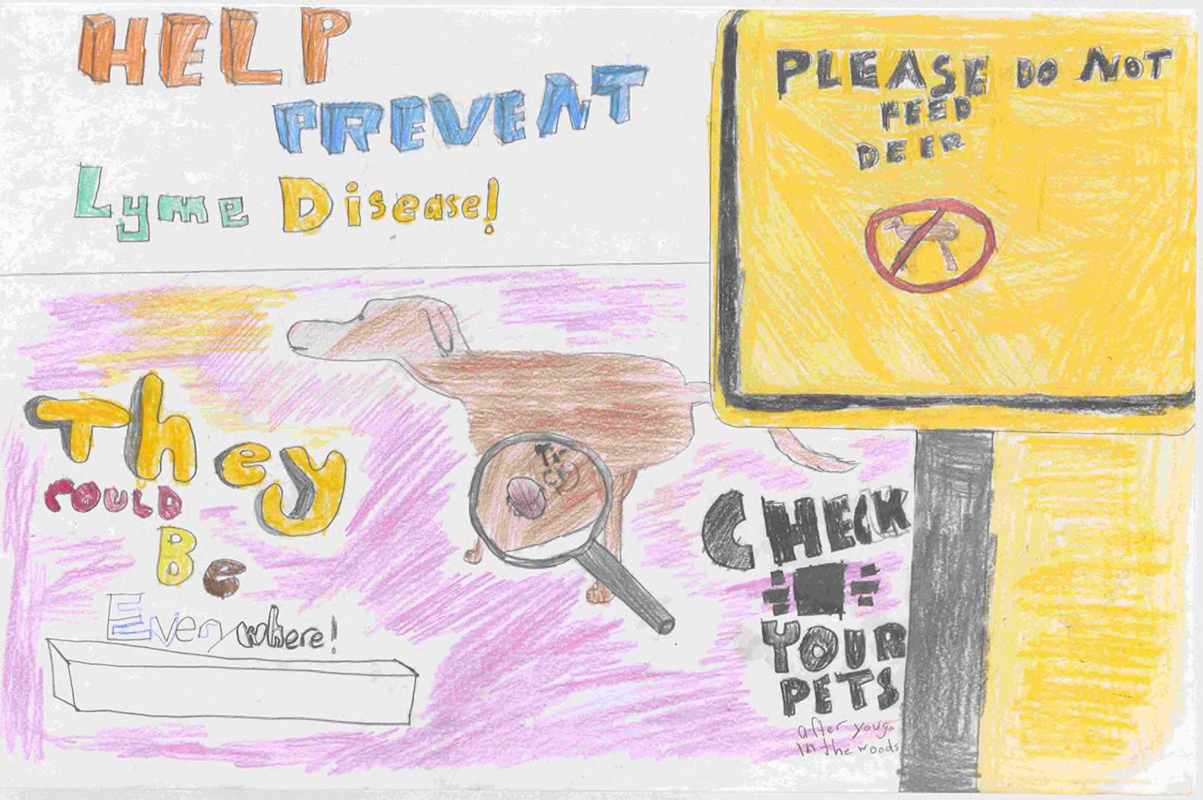 HELP
PREVENT
Lyme Disease!
PLEASE DO NOT
FEED
DEER
They
COULD
Be
Everywhere!
Tick
CHECK
YOUR
PETS
after you go
in the woods